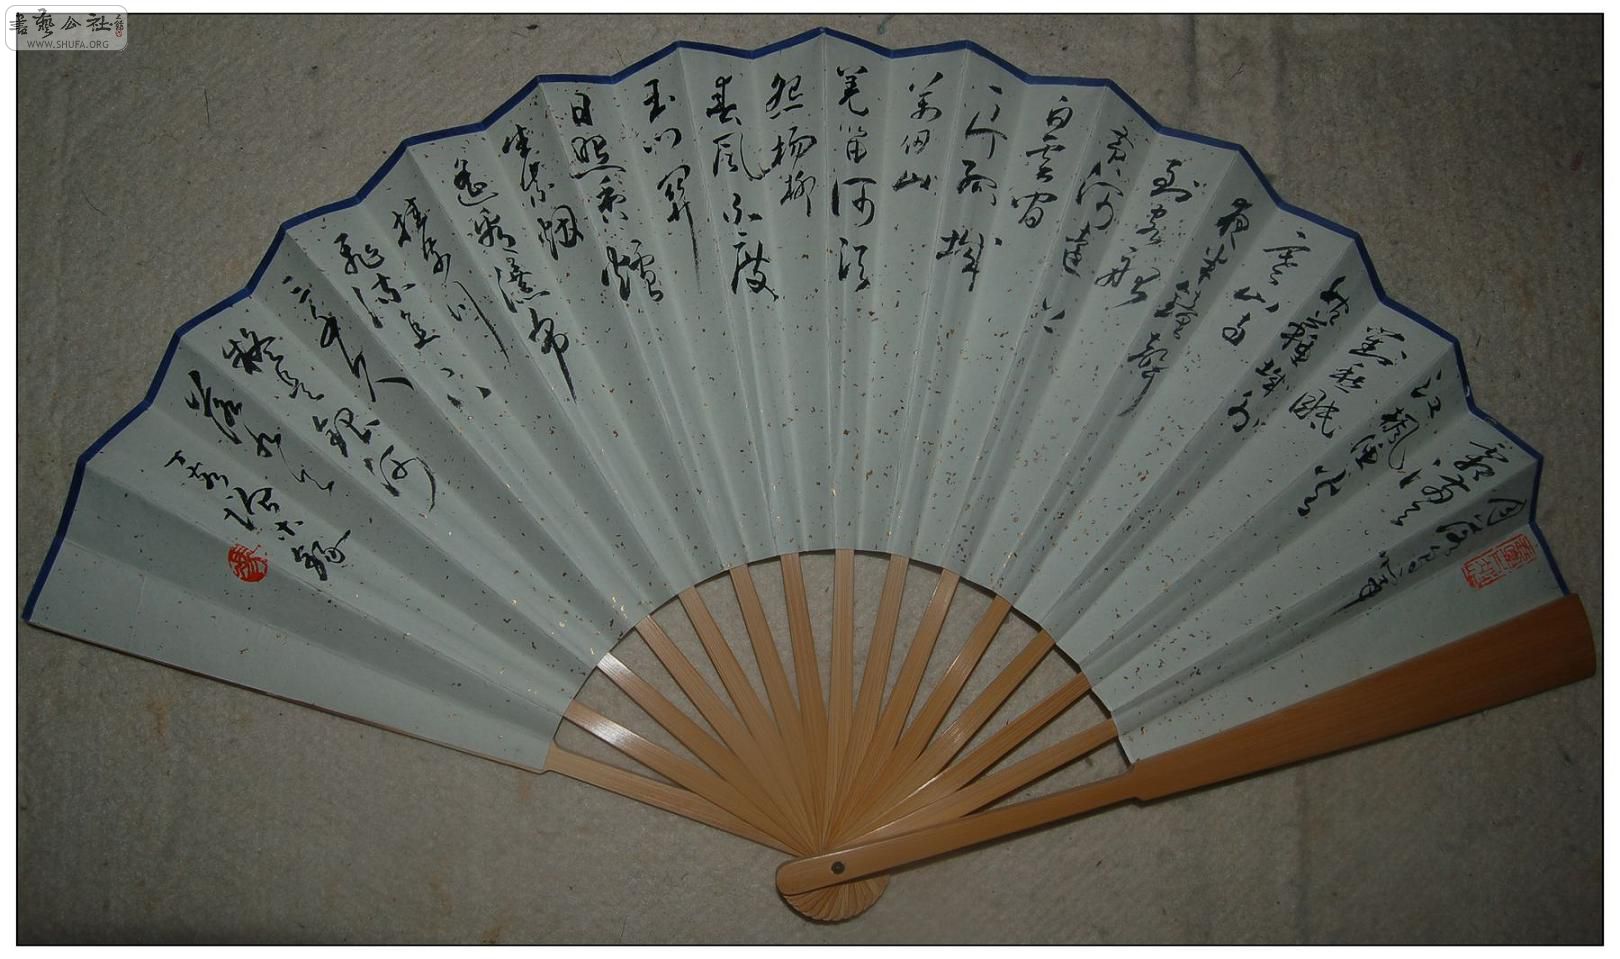 書藝公社
WWW.SHUFA.ORG
月落烏啼
霜滿天
江楓漁火
對愁眠
姑蘇城外
寒山寺
夜半鐘聲
到客船
黃河遠上
白雲間
一片孤城
萬仞山
羌笛何須
怨楊柳
春風不度
玉門關
日照香爐
生紫烟
遙看瀑布
掛前川
飛流直下
三千尺
疑是銀河
落九天